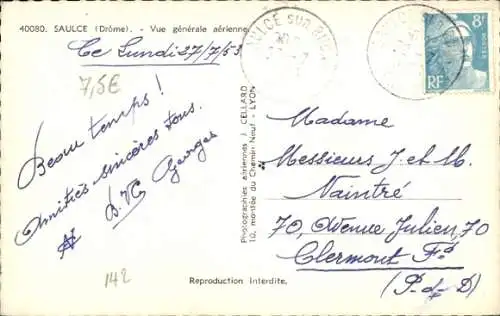 40080. SAULCE (Drôme). - Vue générale aérienne.
Ce Lundi 27/7/53
7,5E
Beau temps !
Amitiés sincères à tous.
Georges
142
Photographies aériennes J. CELLARD
10, montée du Chemin Neuf - LYON
Reproduction Interdite.
8F
RF
Madame
Messieurs J. et M.
Naintré
70, Avenue Julien, 70
Clermont Fd
(P-d-D)